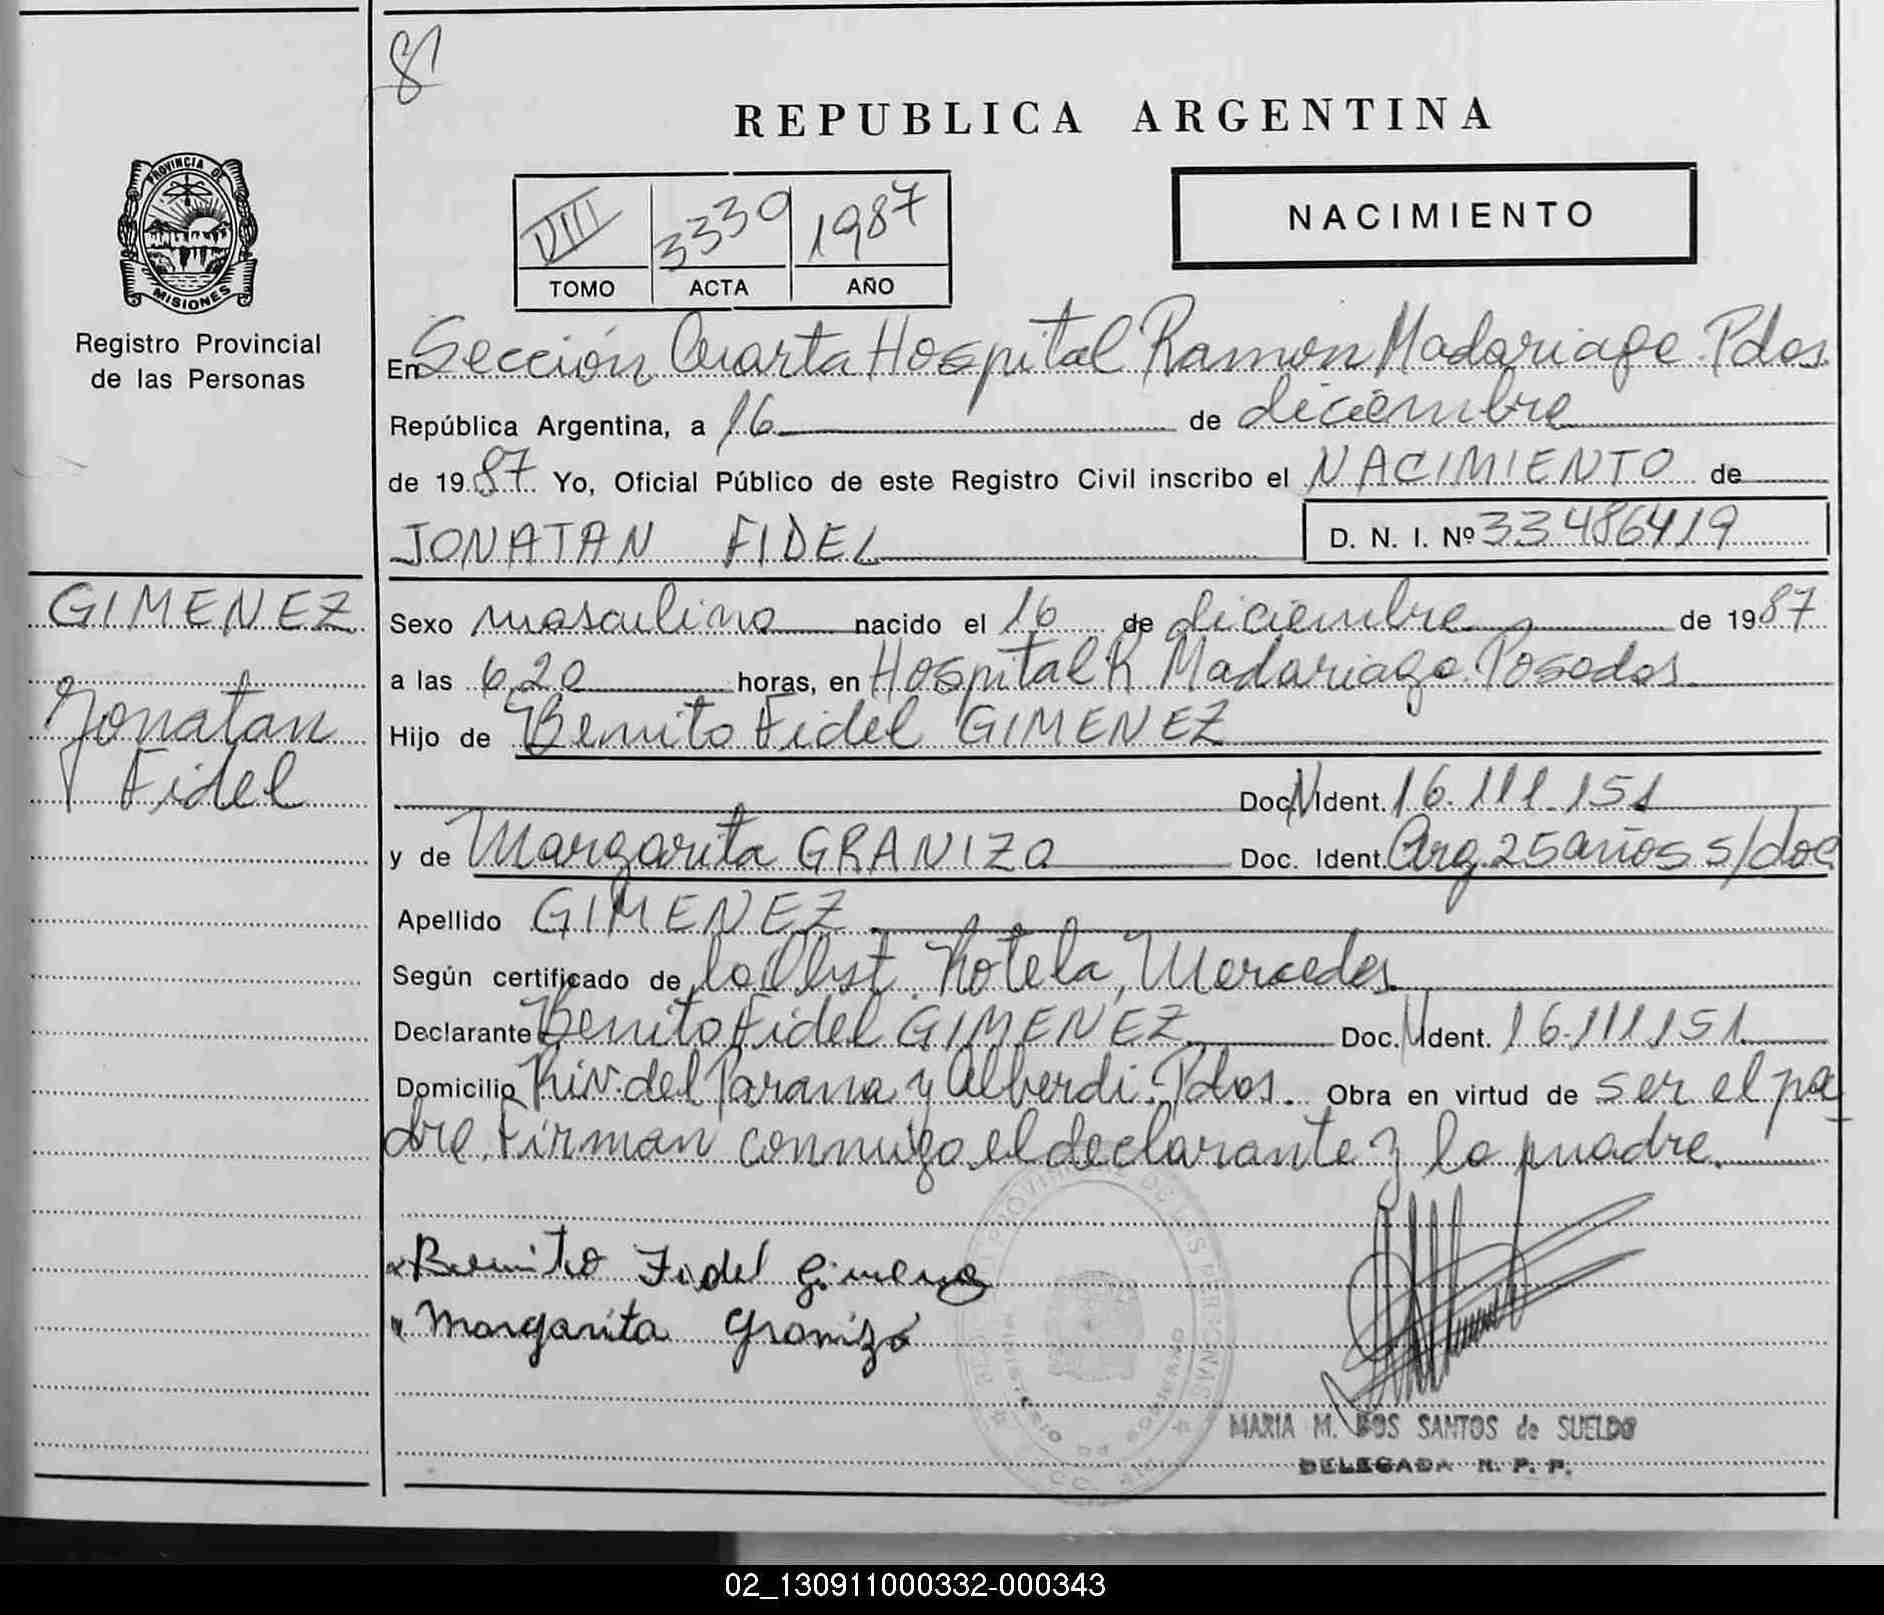 81
REPUBLICA ARGENTINA
PROVINCIA DE
MISIONES
Registro Provincial
de las Personas
VIII 3339 1987
TOMO ACTA AÑO
NACIMIENTO
En Sección Cuarta Hospital Ramon Madariaga. Pdas.
República Argentina, a 16 de diciembre
de 1987 Yo, Oficial Público de este Registro Civil inscribo el NACIMIENTO de
JONATAN FIDEL D. N. I. Nº 33486419
GIMENEZ
Jonatan
Fidel
Sexo masculino nacido el 16 de diciembre de 1987
a las 6,20 horas, en Hospital R Madariaga. Posadas
Hijo de Benito Fidel GIMENEZ
Doc. N Ident. 16.111.151
y de Margarita GRANIZO Doc. Ident. Arg. 25 años s/doc
Apellido GIMENEZ
Según certificado de la Obst. Kotela, Mercedes
Declarante Benito Fidel GIMENEZ Doc. N Ident. 16.111151
Domicilio Riv. del Parana y Alberdi. Pdas. Obra en virtud de ser el pa
dre. Firman conmigo el declarante y la madre.
Benito Fidel Gimenez
Margarita Granizo
MARIA M. DOS SANTOS de SUELDO
DELEGADA R. P. P.
02_130911000332-000343